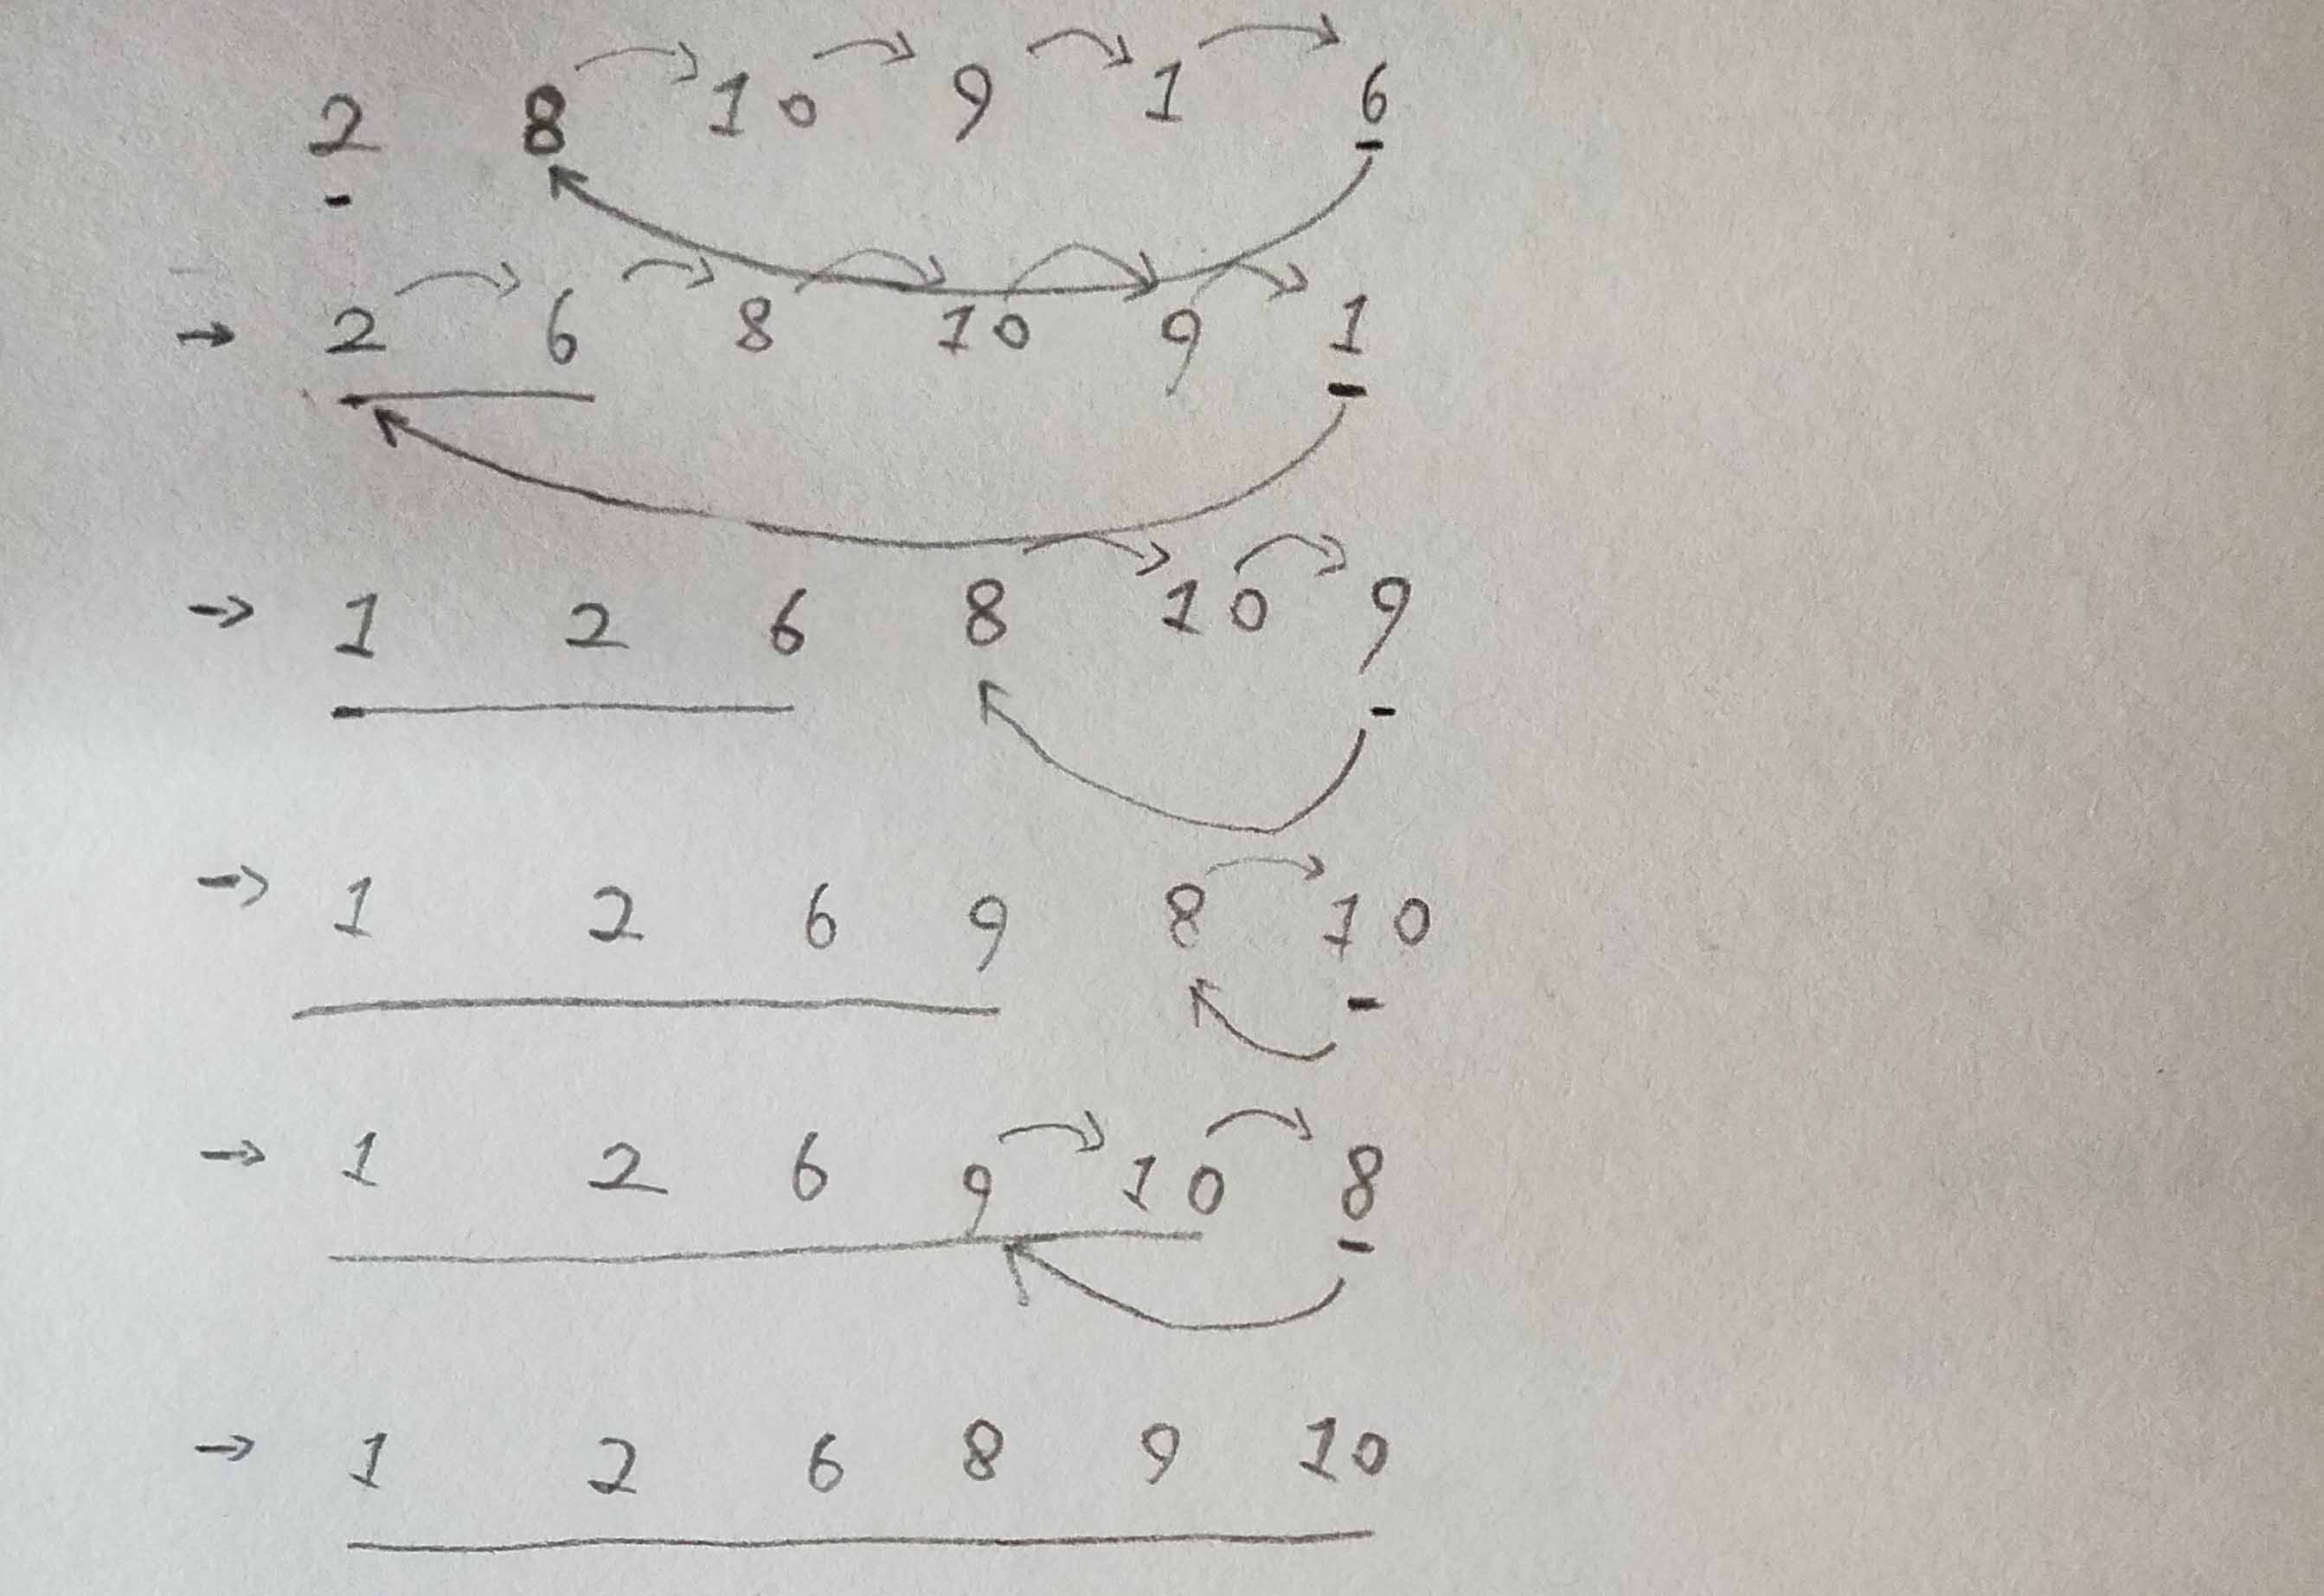 2 8 10 9 1 6
→ 2 6 8 10 9 1
→ 1 2 6 8 10 9
→ 1 2 6 9 8 10
→ 1 2 6 9 10 8
→ 1 2 6 8 9 10